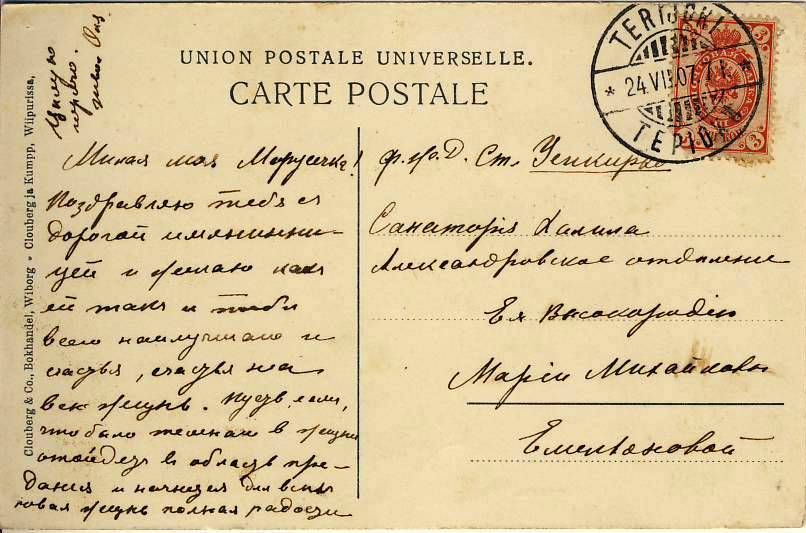 UNION POSTALE UNIVERSELLE.
CARTE POSTALE
TERIJOKI
* 24.VII.07. *
3 3
Clouberg & Co., Bokhandel, Wiborg • Clouberg ja Kumpp, Wiipurissa,
Цѣлую
Милая моя Марусечка!
Поздравляю тебя съ
дорогой имянинни-
цей и желаю какъ
ей такъ и тебѣ
всего наилучшаго и
счастья, счастья на
всю жизнь. Пусть, если,
что было темнаго в жизни
отойдетъ в область пре-
дания и начнется для всѣхъ
новая жизнь полная радости
Ф. ж. д. Ст. Усикирко
Санаторiя Халила
Александровское отдѣленiе
Ея Высокородiю
Марiи Михайловнѣ
Емельяновой